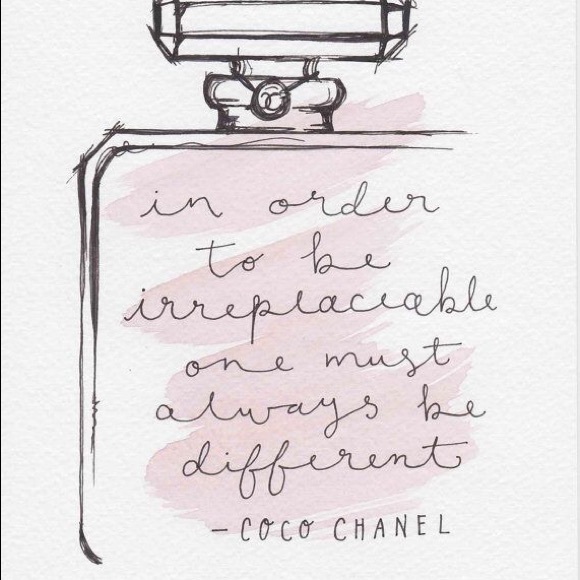 in order
to be
irreplaceable
one must
always be
different
-COCO CHANEL